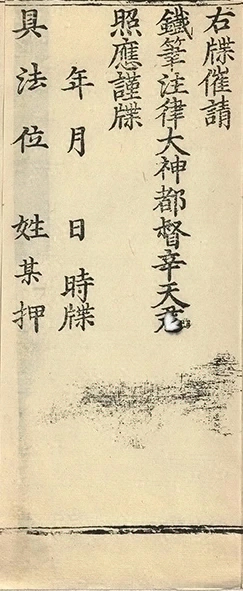 右牒催請
鐵筆注律大神都督辛天君
照應謹牒
年 月 日 時牒
具法位 姓某押